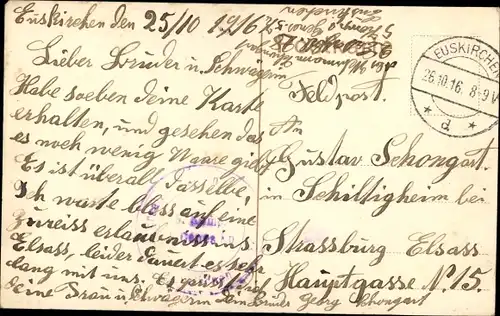 Euskirchen den 25/10 1916
Lieber Bruder u. Schwägerin
Habe soeben deine Karte
erhalten, und gesehen das
es noch wenig Waare gibt
Es ist überall dasselbe,
Ich warte bloss auf eine
Elsass, leider dauert es sehr
lang mit uns. Es grüßt Dich
deine Frau u. Schwägerin dein Bruder Georg Schongart
Feldpost.
An
Gustav Schongart
in Schiltigheim bei
Strassburg Elsass
Hauptgasse N. 15.
EUSKIRCHEN
26.10.16. 8-9V
* d *